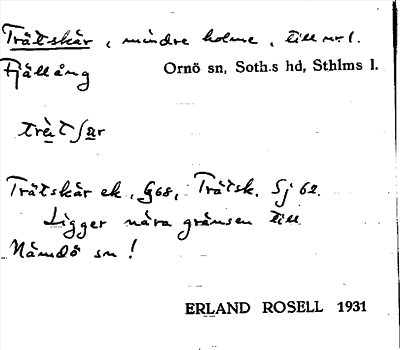 Trätskär, mindre holme, till nr 1.
Fjällång
Ornö sn, Soth.s hd, Sthlms l.
trä̀tʃạr
Trätskär ek. G68, Trätsk. Sj 62.
Ligger nära gränsen till
Nämdö sn!
ERLAND ROSELL 1931